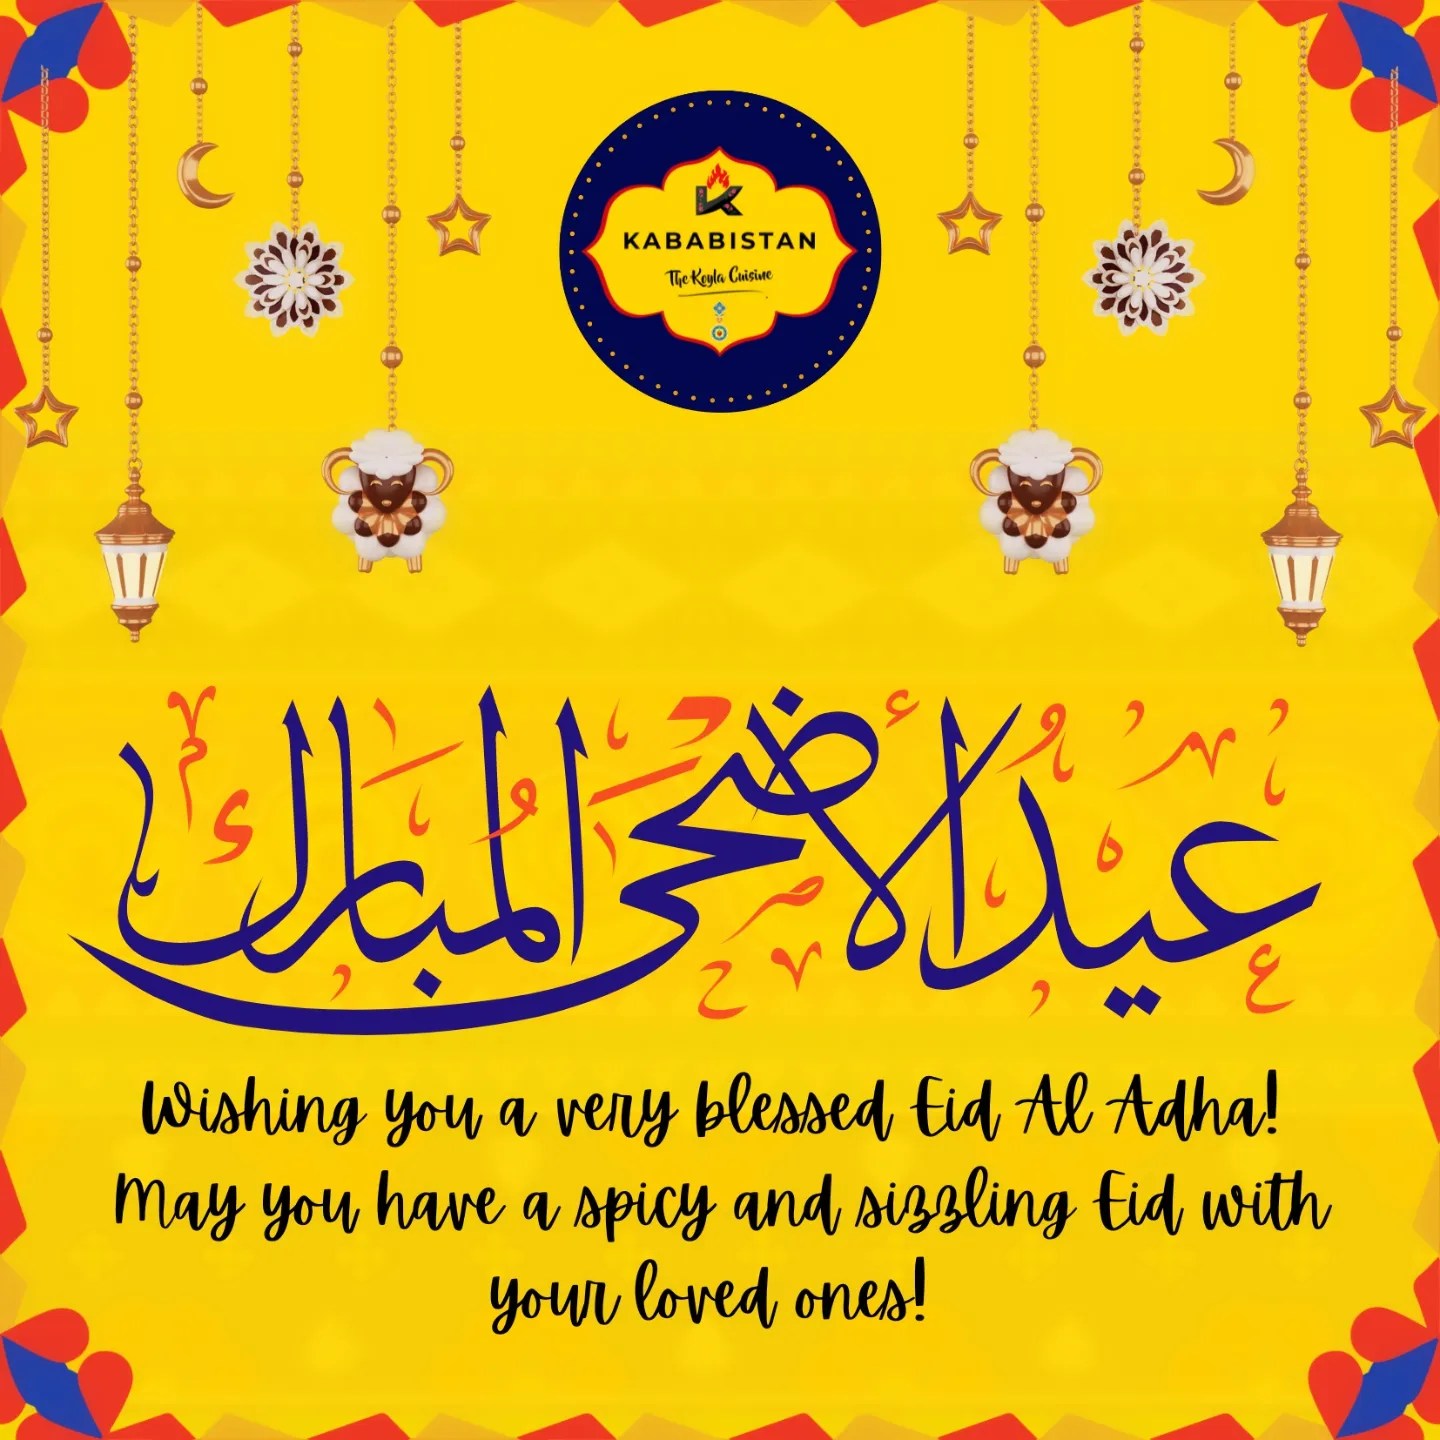 K
KABABISTAN
The Koyla Cuisine
عيدُ الأضحى المُبارك
Wishing you a very blessed Eid Al Adha!
May you have a spicy and sizzling Eid with
your loved ones!